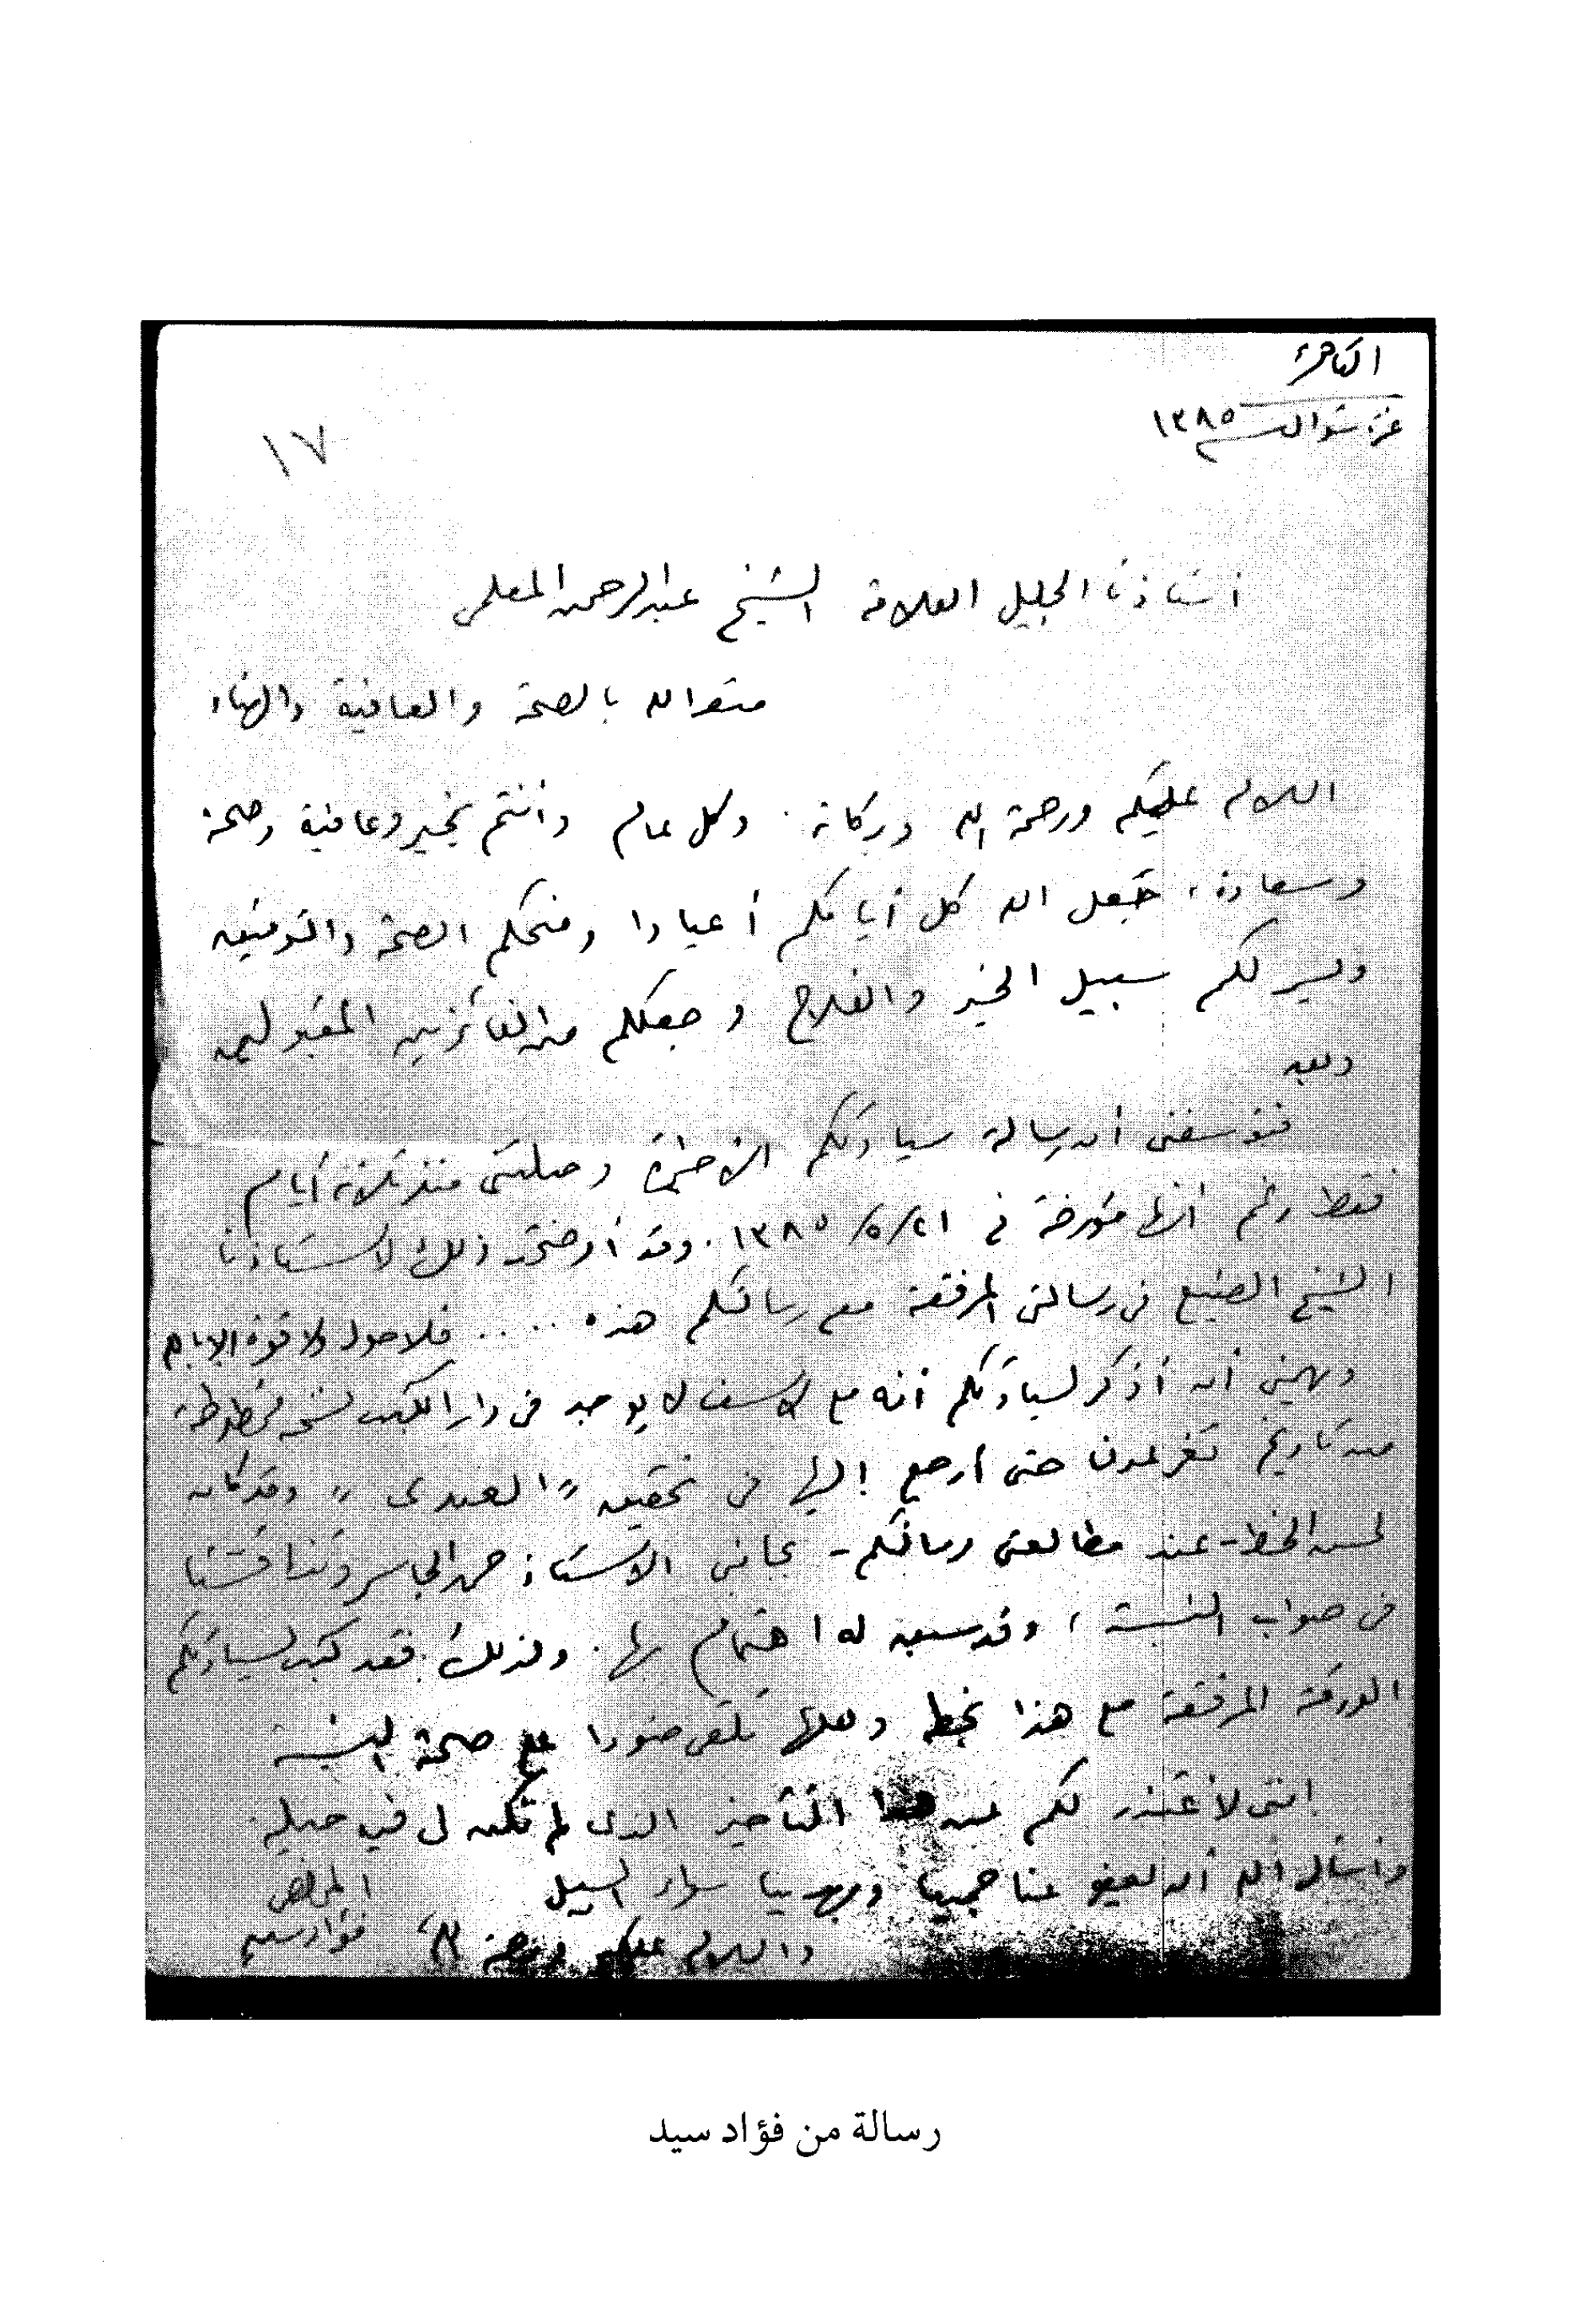 القاهرة
غرة شوال سنة ١٣٨٥
١٧
أستاذنا الجليل العلامة الشيخ عبد الرحمن المعلمى
متعه الله بالصحة والعافية والهناء
السلام عليكم ورحمة الله وبركاته. وكل عام وأنتم بخير وعافية وصحة
وسعادة، جعل الله كل أيامكم أعيادا ومنحكم الصحة والتوفيق
ويسر لكم سبيل الخير والفلاح وجعلكم من الفائزين المقبولين
وبعد
فيؤسفنى أن رسالة سيادتكم الأخيرة وصلتنى منذ ثلاثة أيام
فقط رغم أنها مؤرخة فى ٢١/٥/١٣٨٥. وقد أوضحت ذلك لأستاذنا
الشيخ الصنيع فى رسالتى المرفقة مع رسالتكم هذه .... فلا حول ولا قوة إلا بالله
ويهمنى أن أذكر لسيادتكم أنه مع الأسف لا يوجد فى دار الكتب نسخة مخطوطة
من تاريخ ثغر عدن حتى أرجع إليها فى تحقيق "العندى" وقد كان
لحسن الحظ - عند مطالعتى رسالتكم - بجانبى الأستاذ حمد الجاسر وتناقشنا
فى صواب النسبة، وقد سبق له اهتمام بها. ولذلك فقد كتب لسيادتكم
الورقة المرفقة مع هذا بخطه ولعلها تلقى ضوءا على صحة النسبة
إننى لأعتذر لكم عن هذا التأخير الذى لم تكن لى فيه حيلة.
وأسأل الله أن يعفو عنا جميعا ويهدينا سواء السبيل
والسلام عليكم ورحمة الله
المخلص
فؤاد سيد
رسالة من فؤاد سيد